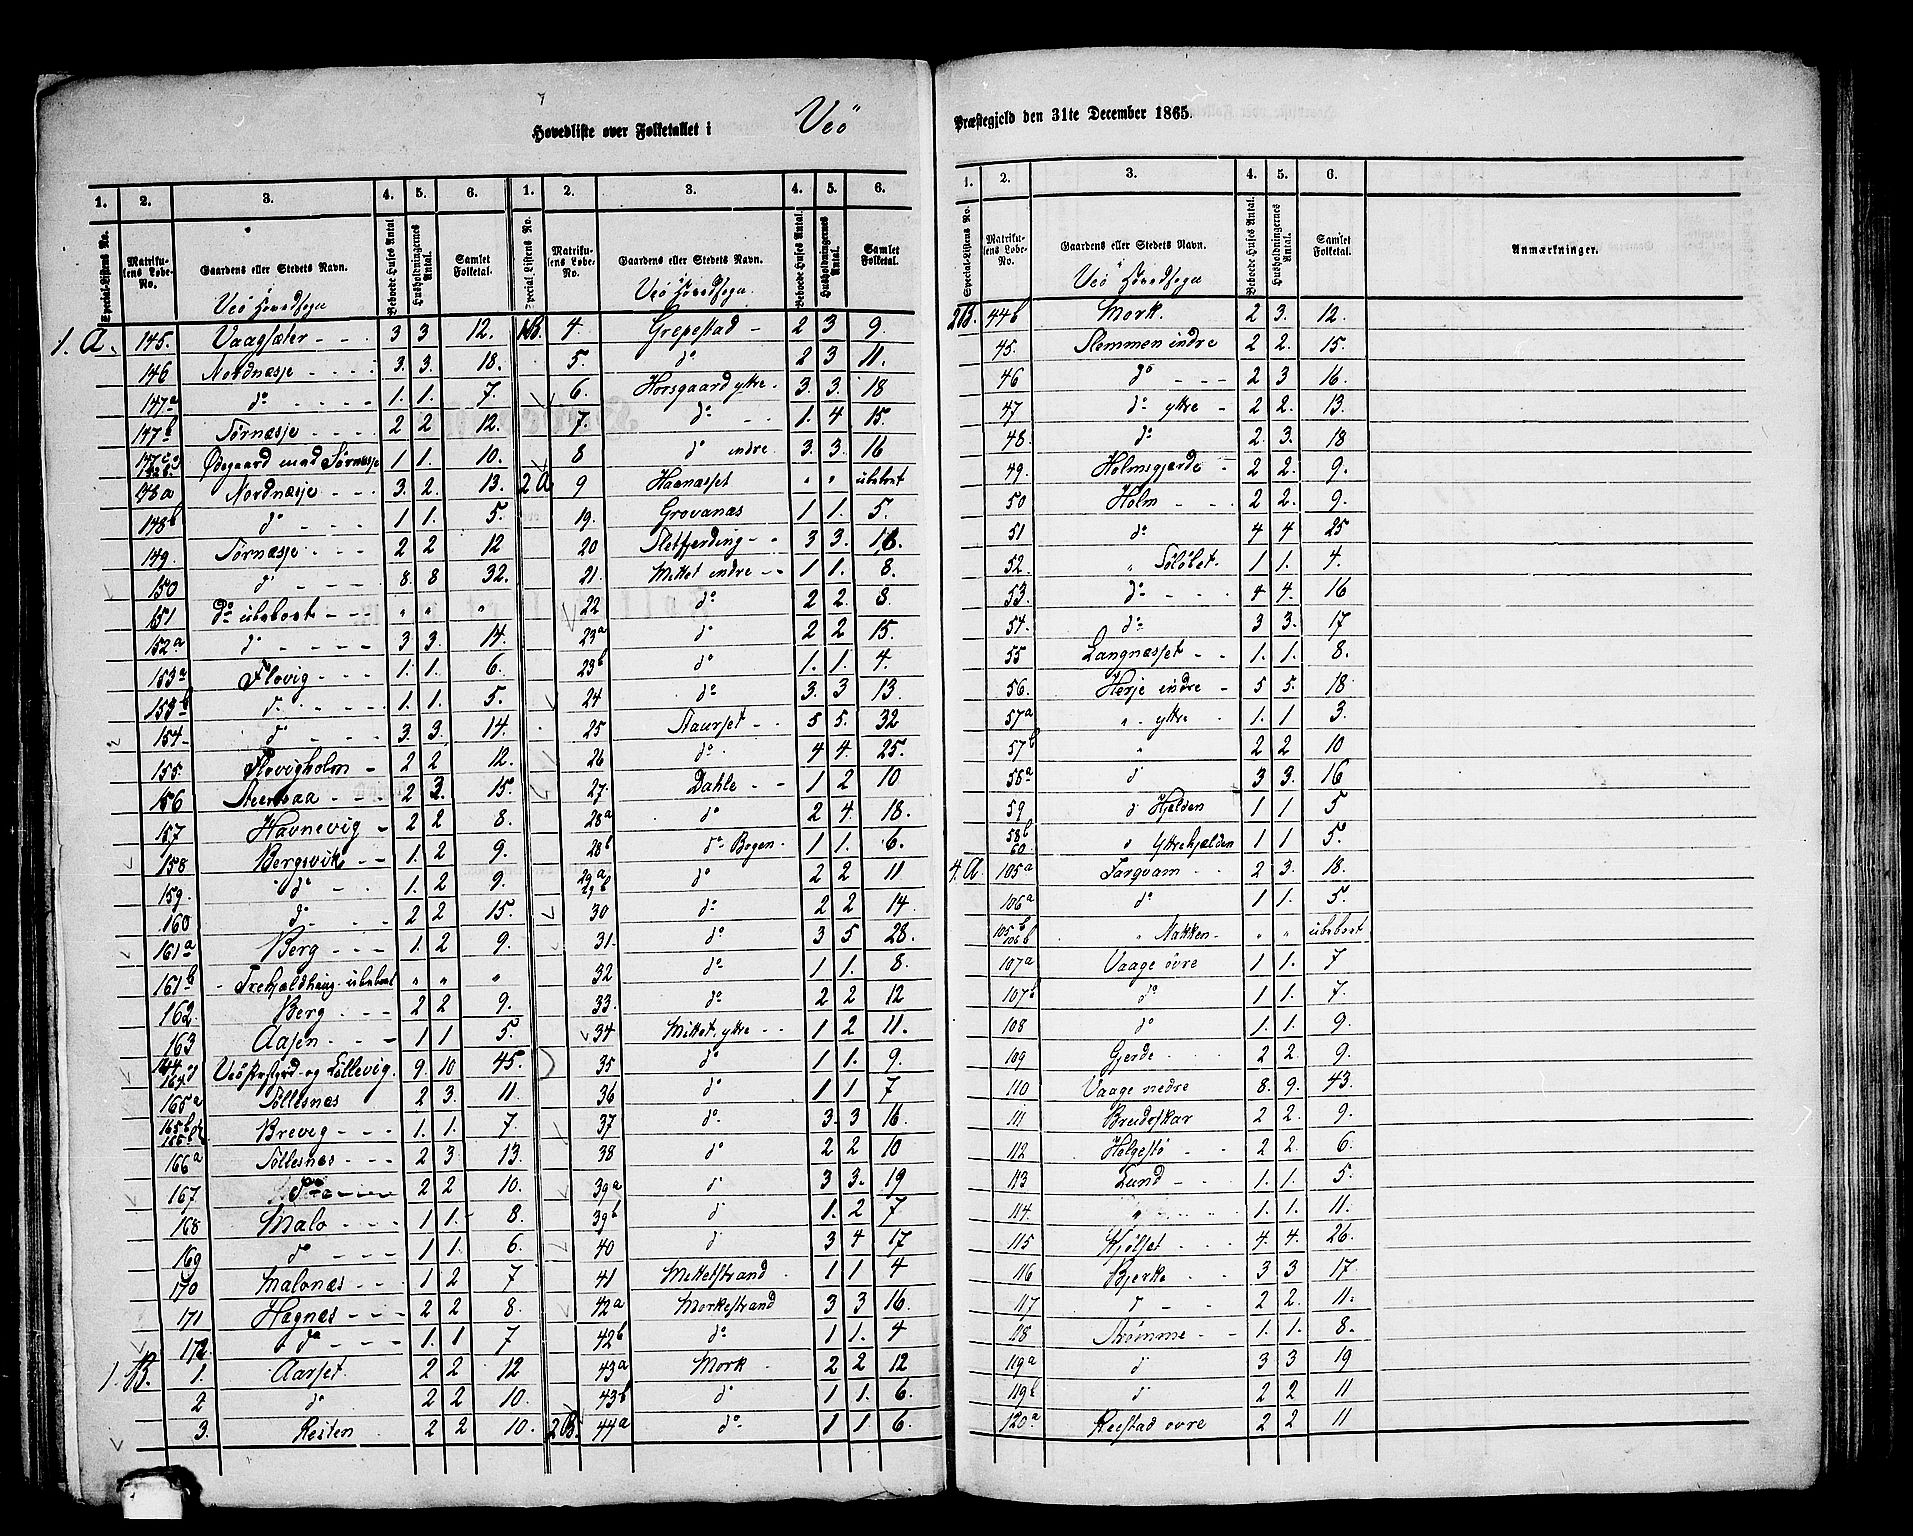 Hovedliste over Folketallet i Veö Præstegjeld den 31te December 1865.
1. 2. 3. 4. 5. 6. 1. 2. 3. 4. 5. 6.
Special-Listens No. Matrikulens Løbe-No. Gaardens eller Stedets Navn. Beboede Huses Antal Husholdningernes Antal. Samlet Folketal. Special-Listens No. Matrikulens Løbe-No. Gaardens eller Stedets Navn. Beboede Huses Antal. Husholdningernes Antal. Samlet Folketal.
Veö Hovedsogn Veö Hovedsogn.
1. A. 145. Vaagsæter - - 3 3 12.
146 Nordnæsje - - - - 3. 3. 18.
147a do - - - - 1. 1. 7.
147b Sørnæsje - - - - 2 2 12.
147c Ødegaard med Sørnæsje 1 1. 10.
148a Nordnæsje - - - 3. 2. 13.
148b do - - - - 1 1. 5.
149. Sørnæsje - - - 2 2 12
150 d - - - - 8. 8 32.
151 do ubeboet - - - " " "
152a do - - - - 3 3. 14.
153a Flovig - - - 1. 1. 6.
153b d. - - - - 1. 1. 5.
154 d - - - - 3. 3. 14.
155. Flovigholm - 2 2 12.
156 Steensaa - - - 2 3. 15.
157 Havnevig - 2 2 8.
158 Bergsvik - - 1. 2 9.
159. do - - 1. 2 9.
160 do - - - 2 2 15.
161a Berg - - - 1. 2 9.
161b Trehjeldhaug ubeboet " " "
162 Berg - - - 2 2 9.
163 Aasen - - - 1 1 5.
164 Veö Præstgrd og Sòllevig. 9. 10 45.
165a Sòllesnæs 2 3. 11.
165b Brevig - - - 1. 1. 7.
166a Sòllesnæs - - - 2 3. 13.
167 do - - - 2 2 10.
168 Malo - - - 1 1. 8.
169 do - - - 1 1. 6.
170 Malonæs - - 1 2 7
171 Hagnæs - - - 2 2 8.
172. do - - - 1. 1 7
1. B. 1. Aarset. 2 2 12
2 do 2 2 10.
3. Resten 2 2 10.
1B. 4. Grepestad - 2 3 9.
5. do 2 3 11.
6. Horsgaard ytre. 3. 3. 18
7. do - - 1. 4 15.
8 do indre. 3. 3. 16
2 A 9 Haanasset " " ubeboet
19. Grovanæs 1 1. 5.
20 Sletfjerding - - 3 3. 18.
21. Mittet indre - - 1 1. 8.
22 do 2 2. 8.
23a do 2 2 15.
23b do 1. 1. 4.
24 do 3. 3 13.
25 Staurset - - 5 5. 32
26 do 4 4. 25.
27. Dahle - - 1 2 10
28a do 2 4. 18.
28b do Bogen - 1 1. 6.
29a 29b do 2 2 11
30 do 2 2 14.
31. do 3 5 28.
32 do 1 1. 8.
33. do 2 2 12
34 Mittet ytre - - 1 2 11.
35 do 1 1. 9.
36 do 1 1 7
37 do. 3. 3 16.
38 do 2 2 10
39a d 3 3. 19
39b d 1. 2 7
40 d 3 4 17
41 Mittetstrand 1 1 4
42a Morkestrand 3 3 16.
42b do 1 1. 4
43a Mork 2 2 12
43b do 1 1. 6.
2B. 44a do 1 1. 6
1. 2. 3. 4. 5. 6.
Special-Listens No. Matrikulens Løbe-No. Gaardens eller Stedets Navn. Beboede Huses Antal. Husholdningernes Antal. Samlet Folketal. Anmærkninger.
Veö Hovedsogn
2B. 44b Mork. 2 3. 12.
45. Slemmen indre 2 2. 15.
46 do - - - 2 3 16.
47 do ytre - 2 2. 13.
48. do 2. 3. 18
49. Holmsgjerde - 2 2. 9.
50 Holm - - - 2 2. 9.
51 do 4 4 25
52. " Sölöbet. 1 1. 4.
53. do - - - 4 4. 16
54. do 3 3. 17
55 Langnæsset - - 1. 1. 8.
56. Herje indre - 5 5. 18
57a " - ytre - 1. 1 3.
57b " 2 2 10
58a d 3 3. 16
59 d Hjelden 1 1 5
58b 60 d Ytrehjelden 1 1 5.
4. A. 105a Torgvam - - 2 3. 18.
106a do 1 1. 5.
105b 106b " Nakken. " " ubeboet
107a Vaage övre 1 1. 7
107b do 1 1. 7.
108 do 1. 1. 9.
109 Gjerde - 2 2. 9.
110 Vaage nedre 8. 9. 43.
111 Breideskar 2 2. 9.
112 Helgestö - 2 2. 6.
113 Lund - - 1. 1. 5.
114. " - - 1. 1. 11.
115 Kjölset - - 4. 4. 26.
116 Bjerke - - 3 3 17.
117 d - - 2 2. 11.
118 Strömme - - 1. 1. 8.
119a d 3 3 19
119b d 2 2 11
120a Reestad övre 2 2 11